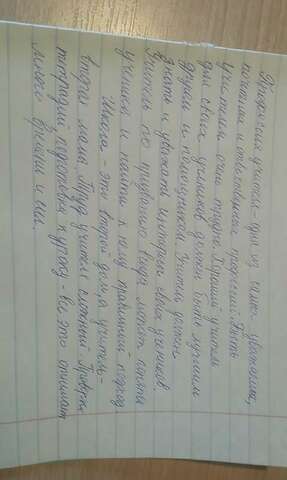 Профессия учитель - одна из самых уважаемых,
почетных и ответственных профессий. Быть
учителем очень трудно. Хороший учитель
для своих учеников должен быть лучшим
другом и помощником. Учитель должен
знать и уважать интересы своих учеников.
Учитель по призванию всегда может понять
ученика и найти к нему правильный подход.
Школа - это второй дом, а учитель -
вторая мама. Труд учителя сложный. Проверка
тетрадей, подготовка к уроку - все это отнимает
много времени и сил.